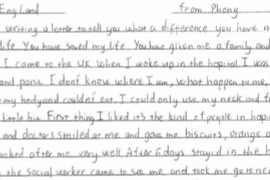 England from Phong
writing a letter to tell you what a difference you have m
life. You have saved my life. You have given me a family and
I came to the UK. When I woke up in the hospital I was
and panic. I don't know where I am, what happen to me,
my body and couldn't eat. I could only use my neck and f
little bit. First thing I liked it's the kind of people in hosp
and doctors smiled at me and gave me biscuits, orange
looked after me very well. After 6 days stayed in the
the social worker came to see me, and took me to